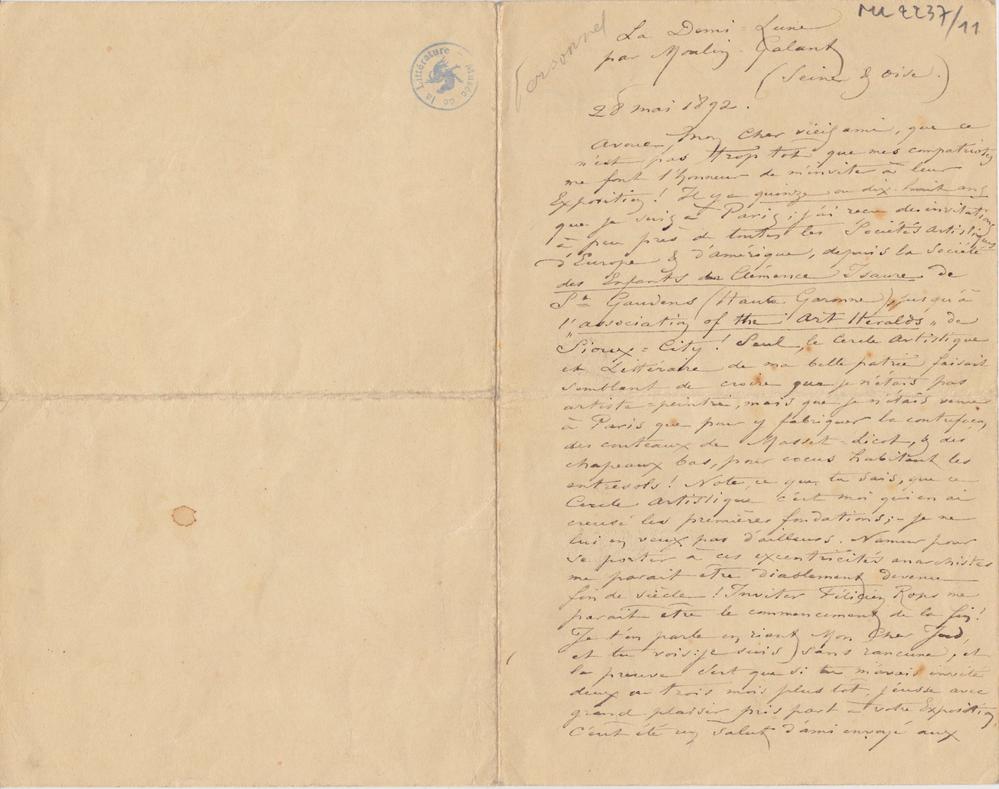 ML 2237/11
Musée de la Littérature
Personnel
La Demi-Lune
par Moulin-Galant
(Seine & Oise.)
28 mai 1892.
Avoue, Mon Cher vieil ami, que ce
n'est pas trop tôt que mes compatriotes
me font l'honneur de m'inviter à leur
Exposition! Il y a quinze ou dix-huit ans
que je suis à Paris; j'ai reçu des invitations
à peu près de toutes les Sociétés Artistiques
d'Europe & d'Amérique, depuis la Société
des Enfants de Clémence Isaure de
St Gaudens (Haute Garonne) jusqu'à
l'"association of the Art Heralds" de
Sioux-City! Seul, le Cercle Artistique
et Littéraire de ma belle patrie, faisait
semblant de croire que je n'étais pas
artiste-peintre, mais que je n'étais venu
à Paris que pour y fabriquer la contrefaçon
des couteaux de Masset-dicot, & des
chapeaux bas, pour cocus habitant les
entresols! Note, ce que tu sais, que ce
Cercle Artistique c'est moi qui en ai
creusé les premières fondations; - je ne
lui en veux pas d'ailleurs. Namur pour
se porter à ces excentricités anarchistes
me parait etre diablement devenu
fin de siècle! Inviter Félicien Rops me
parait etre le commencement de la fin!
Je t'en parle en riant Mon Cher
et tu vois: je suis sans rancune, et
la preuve c'est que si tu m'avais invité
deux ou trois mois plus tot, j'eusse avec
grand plaisir pris part à votre Exposition
C'eut été un salut d'ami envoyé aux